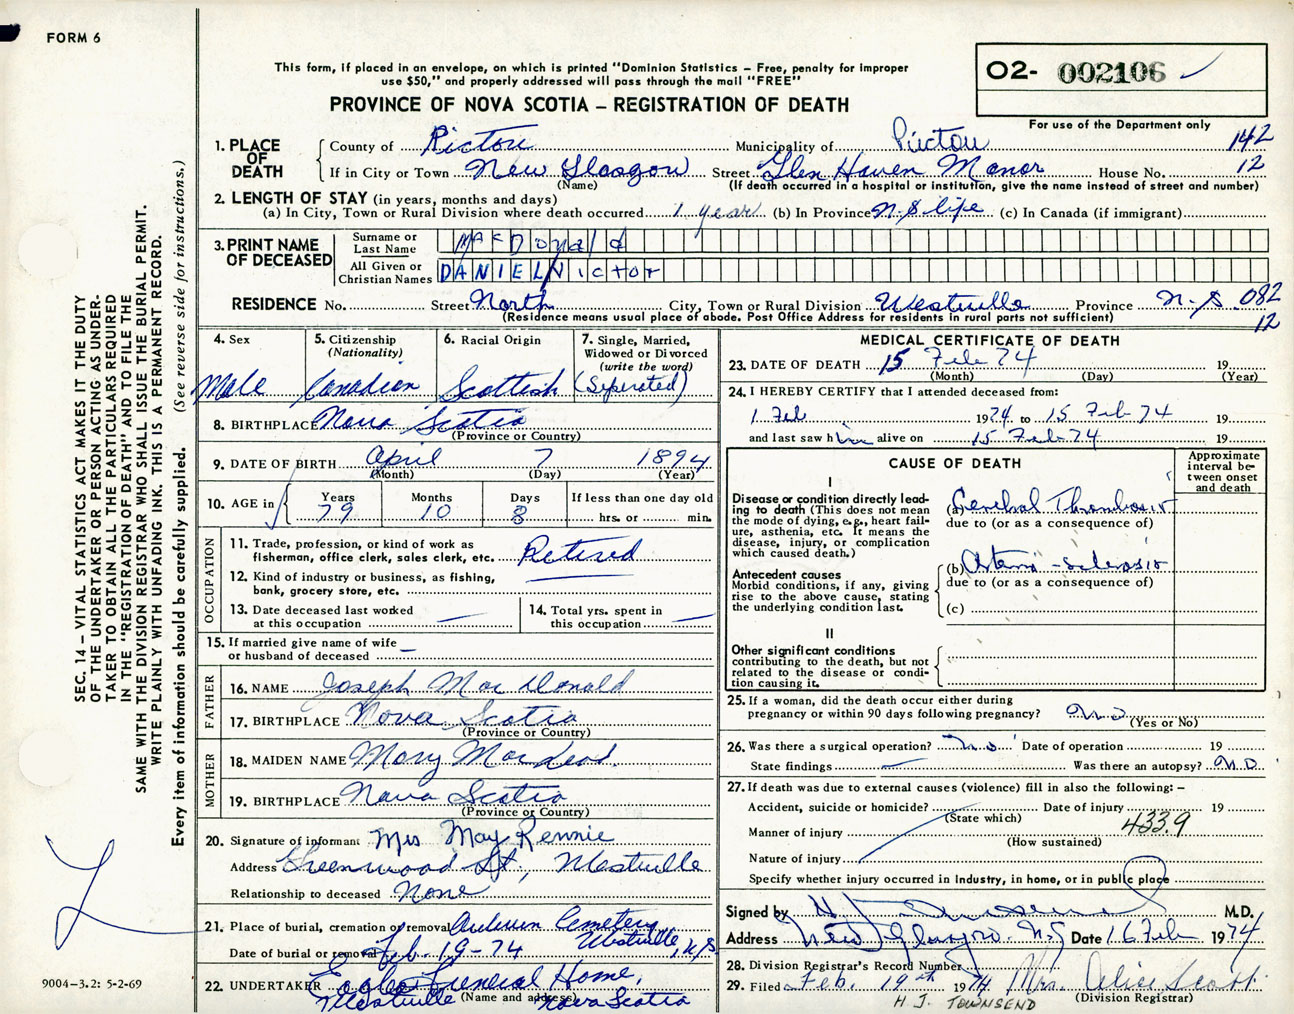 FORM 6
This form, if placed in an envelope, on which is printed "Dominion Statistics – Free, penalty for improper
use $50," and properly addressed will pass through the mail "FREE"
PROVINCE OF NOVA SCOTIA – REGISTRATION OF DEATH
O2- 002106
For use of the Department only
1. PLACE OF DEATH
County of Pictou Municipality of Pictou 142
If in City or Town New Glasgow Street Glen Haven Manor House No. 12
(Name) (If death occurred in a hospital or institution, give the name instead of street and number)
2. LENGTH OF STAY (in years, months and days)
(a) In City, Town or Rural Division where death occurred 1 year (b) In Province N.S life (c) In Canada (if immigrant)
3. PRINT NAME OF DECEASED
Surname or Last Name MacDonald
All Given or Christian Names DANIEL Victor
RESIDENCE No. Street North City, Town or Rural Division Westville Province N.S. 082
(Residence means usual place of abode. Post Office Address for residents in rural parts not sufficient) 12
4. Sex
Male
5. Citizenship
(Nationality)
Canadian
6. Racial Origin
Scottish
7. Single, Married,
Widowed or Divorced
(write the word)
(Seperated)
8. BIRTHPLACE Nova Scotia
(Province or Country)
9. DATE OF BIRTH April 7 1894
(Month) (Day) (Year)
10. AGE in
Years Months Days If less than one day old
79 10 8 hrs. or min.
OCCUPATION
11. Trade, profession, or kind of work as
fisherman, office clerk, sales clerk, etc. Retired
12. Kind of industry or business, as fishing,
bank, grocery store, etc.
13. Date deceased last worked
at this occupation
14. Total yrs. spent in
this occupation
15. If married give name of wife
or husband of deceased
FATHER
16. NAME Joseph MacDonald
17. BIRTHPLACE Nova Scotia
(Province or Country)
MOTHER
18. MAIDEN NAME Mary MacLeod.
19. BIRTHPLACE Nova Scotia
(Province or Country)
20. Signature of informant Mrs May Rennie
Address Greenwood St, Westville
Relationship to deceased None
21. Place of burial, cremation or removal Auburn Cemetery
Westville, N.S.
Date of burial or removal Feb. 19-74
22. UNDERTAKER Eagles Funeral Home,
(Name and address)
Westville Nova Scotia
MEDICAL CERTIFICATE OF DEATH
23. DATE OF DEATH 15 Feb 74 19
(Month) (Day) (Year)
24. I HEREBY CERTIFY that I attended deceased from:
1 Feb 1974 to 15 Feb 74 19
and last saw him alive on 15 Feb 74 19
CAUSE OF DEATH
Approximate
interval be-
tween onset
and death
I
Disease or condition directly lead-
ing to death (This does not mean
the mode of dying, e.g., heart fail-
ure, asthenia, etc. It means the
disease, injury, or complication
which caused death.)
(a) Cerebral Thrombosis
due to (or as a consequence of)
Antecedent causes
Morbid conditions, if any, giving
rise to the above cause, stating
the underlying condition last.
(b) Arterio-sclerosis
due to (or as a consequence of)
(c)
II
Other significant conditions
contributing to the death, but not
related to the disease or condi-
tion causing it.
25. If a woman, did the death occur either during
pregnancy or within 90 days following pregnancy? No
(Yes or No)
26. Was there a surgical operation? No Date of operation 19
State findings Was there an autopsy? No
27. If death was due to external causes (violence) fill in also the following: –
Accident, suicide or homicide? Date of injury 19
(State which)
Manner of injury 433.9
(How sustained)
Nature of injury
Specify whether injury occurred in Industry, in home, or in public place
Signed by M.D.
Address New Glasgow, N.S Date 16 Feb 1974
28. Division Registrar's Record Number
29. Filed Feb. 19th 1974 Mrs. Alice Scott.
H J. TOWNSEND (Division Registrar)
SEC. 14 – VITAL STATISTICS ACT MAKES IT THE DUTY
OF THE UNDERTAKER OR PERSON ACTING AS UNDER-
TAKER TO OBTAIN ALL THE PARTICULARS REQUIRED
IN THE "REGISTRATION OF DEATH" AND TO FILE THE
SAME WITH THE DIVISION REGISTRAR WHO SHALL ISSUE THE BURIAL PERMIT.
WRITE PLAINLY WITH UNFADING INK. THIS IS A PERMANENT RECORD.
Every item of information should be carefully supplied. (See reverse side for instructions.)
9004–3.2: 5-2-69